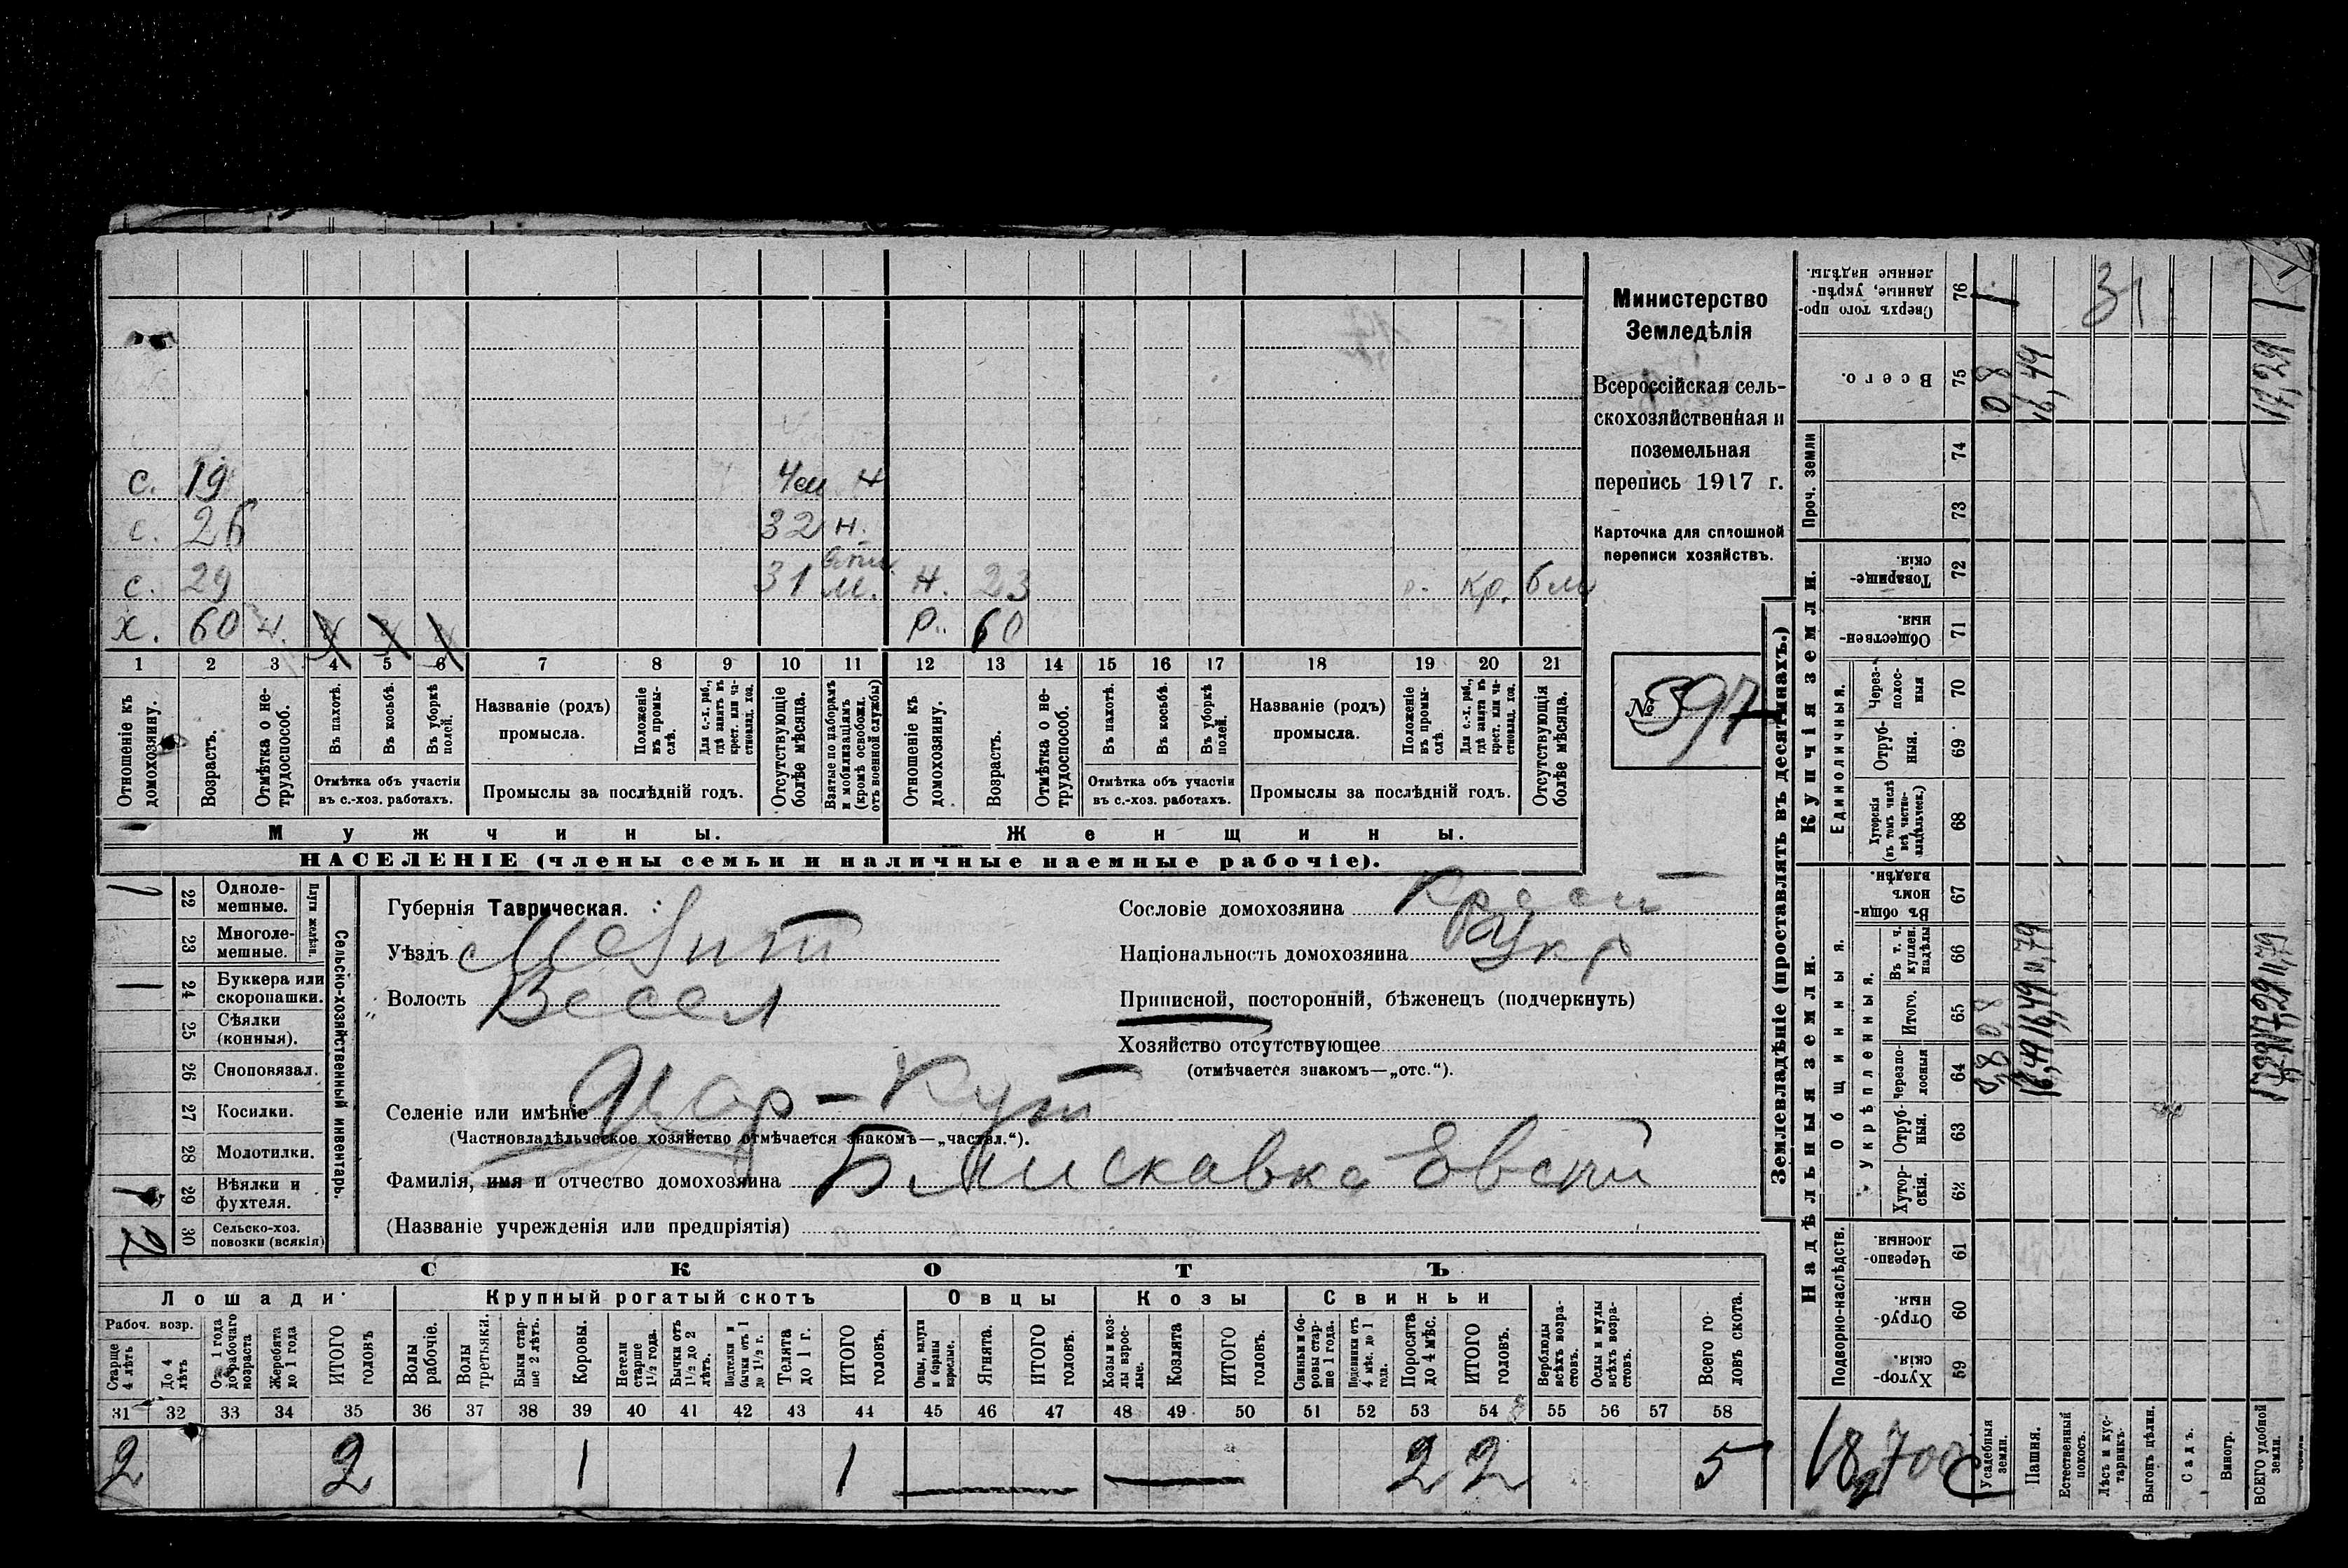 с. 19 4м н
с. 26 32 н.
с. 29 31 м. н. 23 кр. 6м
х. 60 н. р. 60
1 2 3 4 5 6 7 8 9 10 11 12 13 14 15 16 17 18 19 20 21
Отношеніе къ домохозяину.
Возрастъ.
Отмѣтка о не-трудоспособ.
Въ пахотѣ.
Въ косьбѣ.
Въ уборкѣ полей.
Отмѣтка объ участіи
въ с.-хоз. работахъ.
Названіе (родъ)
промысла.
Положеніе въ промы-слѣ.
Для с.-х. раб., гдѣ занятъ въ крест. или ча-стновлад. хоз.
Промыслы за послѣдній годъ.
Отсутствующіе болѣе мѣсяца.
Взятые по наборамъ и мобилизаціямъ (кромѣ освобожд. отъ военной службы)
Отношеніе къ домохозяину.
Возрастъ.
Отмѣтка о не-трудоспособ.
Въ пахотѣ.
Въ косьбѣ.
Въ уборкѣ полей.
Отмѣтка объ участіи
въ с.-хоз. работахъ.
Названіе (родъ)
промысла.
Положеніе въ промы-слѣ.
Для с.-х. раб., гдѣ занята въ крест. или ча-стновлад. хоз.
Промыслы за послѣдній годъ.
Отсутствующія болѣе мѣсяца.
Мужчины. Женщины.
НАСЕЛЕНІЕ (члены семьи и наличные наемные рабочіе).
Министерство
Земледѣлія
Всероссійская сель-
скохозяйственная и
поземельная
перепись 1917 г.
Карточка для сплошной
переписи хозяйствъ.
№ 397
Сельско-хозяйственный инвентарь.
Плуги желѣзн.
1 22 Одноле-мешные.
23 Многоле-мешные.
1 24 Буккера или скоропашки.
25 Сѣялки (конныя).
26 Сноповязал.
27 Косилки.
28 Молотилки.
1 29 Вѣялки и фухтеля.
2 30 Сельско-хоз. повозки (всякія)
Губернія Таврическая.
Уѣздъ Мелит
Волость Весел
Селеніе или имѣніе Шар-Кут
(Частновладѣльческое хозяйство отмѣчается знакомъ—„частвл.“).
Фамилія, имя и отчество домохозяина Блискавка Евсти
(Названіе учрежденія или предпріятія)
Сословіе домохозяина Крест
Національность домохозяина Укр
Приписной, посторонній, бѣженецъ (подчеркнуть)
Хозяйство отсутствующее
(отмѣчается знакомъ—„отс.“).
СКОТЪ
Лошади Крупный рогатый скотъ Овцы Козы Свиньи
Рабоч. возр.
Старше 4 лѣтъ
До 4 лѣтъ
Отъ 1 года до рабочаго возраста
Жеребята до 1 года
ИТОГО головъ
Волы рабочіе.
Волы третьяки.
Быки стар-ше 2 лѣтъ.
Коровы.
Нетели старше 1½ года.
Бычки отъ 1½ до 2 лѣтъ.
Подтелки и бычки отъ 1 до 1½ г.
Телята до 1 г.
ИТОГО головъ.
Овцы, валухи и бараны взрослые.
Ягнята.
ИТОГО головъ.
Козы и коз-лы взрос-лые.
Козлята
ИТОГО головъ.
Свиньи и бо-ровы стар-ше 1 года.
Подсвинки отъ 4 мѣс. до 1 года.
Поросята до 4 мѣс.
ИТОГО головъ.
Верблюды всѣхъ возра-стовъ.
Ослы и мулы всѣхъ возра-стовъ.
Всего го-ловъ скота.
31 32 33 34 35 36 37 38 39 40 41 42 43 44 45 46 47 48 49 50 51 52 53 54 55 56 57 58
2 2 1 1 2 2 5
Землевладѣніе (проставлять въ десятинахъ.)
Купчія земли.
Надѣльныя земли.
Сверхъ того про-данные, укрѣп-ленные надѣлы. 76 31
Всего. 75 0,8 16,49 17,29
Проч. земли 74 73
Товарище-скія. 72
Обществен-ныя. 71
Единоличныя.
Через-полос-ныя 70
Отруб-ныя. 69
Хуторскія (въ томъ числѣ всѣ частно-владѣльческ.) 68
Общинныя.
Въ общи-номъ владѣн. 67
Укрѣпленныя.
Въ т. ч. куплен. надѣлы 66 11,79 11,79
Итого. 65 0,8 16,49 17,29
Черезпо-лосныя 64 0,8 16,49 17,29
Отруб-ныя. 63
Хутор-скія. 62
Подворно-наслѣдств.
Черезпо-лосныя. 61
Отруб-ныя. 60
Хутор-скія. 59
Усадебныя земли.
Пашня.
Естественный покосъ.
Лѣсъ и кус-тарникъ.
Выгонъ цѣлин.
Садъ.
Виногр.
ВСЕГО удобной земли.